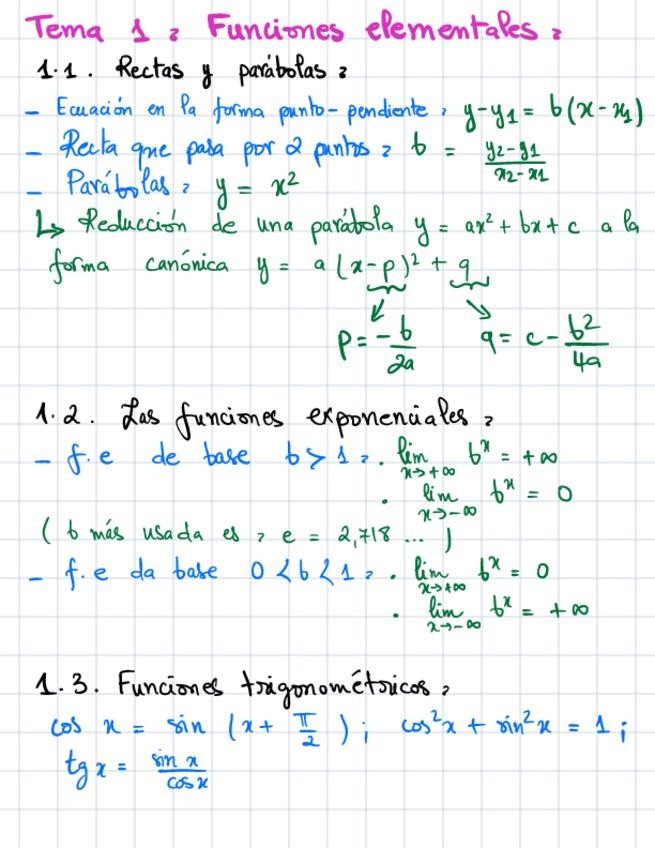 Tema 1: Funciones elementales:
1.1. Rectas y parábolas:
- Ecuación en la forma punto-pendiente: y-y1 = b(x-x1)
- Recta que pasa por 2 puntos: b = (y2-y1)/(x2-x1)
- Parábolas: y = x²
↳ Reducción de una parábola y = ax² + bx + c a la
forma canónica y = a(x-p)² + q
p = -b/2a q = c - b²/4a
1.2. Las funciones exponenciales:
- f.e de base b > 1: . lim x→+∞ b^x = +∞
. lim x→-∞ b^x = 0
(b más usada es: e = 2,718...)
- f.e da base 0 < b < 1: . lim x→+∞ b^x = 0
. lim x→-∞ b^x = +∞
1.3. Funciones trigonométricos:
cos x = sin (x + π/2); cos²x + sin²x = 1;
tg x = sin x / cos x